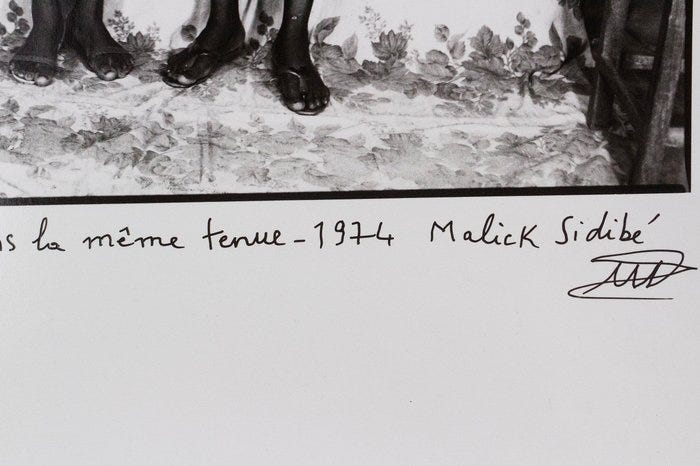 la même tenue - 1974 Malick Sidibé